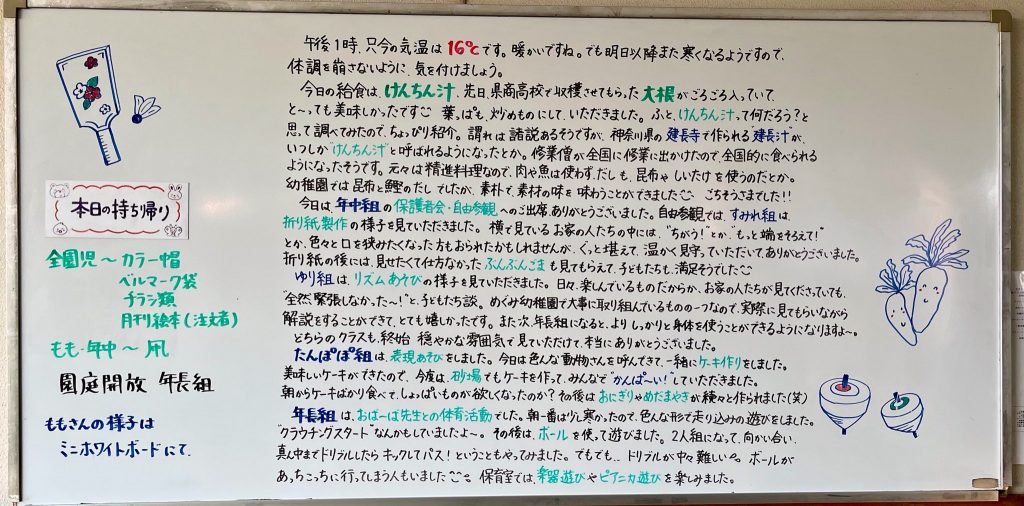 午後1時、只今の気温は16℃です。暖かいですね。でも明日以降また寒くなるようですので、
体調を崩さないように、気を付けましょう。
今日の給食は、けんちん汁、先日、県商高校で収穫させてもらった大根がごろごろ入っていて、
と〜っても美味しかったです 葉っぱも、炒めものにして、いただきました。ふと、けんちん汁って何だろう?と
思って調べてみたので、ちょっぴり紹介。謂れは諸説あるそうですが、神奈川県の建長寺で作られる"建長汁"が、
いつしか"けんちん汁"と呼ばれるようになったとか。修業僧が全国に修業に出かけたので、全国的に食べられる
ようになったそうです。元々は精進料理なので、肉や魚は使わず、だしも、昆布やしいたけを使うのだとか。
幼稚園では昆布と鰹のだしでしたが、素朴で、素材の味を味わうことができました ごちそうさまでした!!
今日は、年中組の保護者会・自由参観へのご出席、ありがとうございました。自由参観では、すみれ組は、
折り紙製作の様子を見ていただきました。横で見ているお家の人たちの中には、"ちがう!"とか、"もっと端をそろえて!"
とか、色々と口を挟みたくなった方もおられたかもしれませんが、ぐっと堪えて、温かく見守っていただいて、ありがとうございました。
折り紙の後には、見せたくて仕方なかったぶんぶんごまも見てもらえて、子どもたちも、満足そうでした
ゆり組は、リズムあそびの様子を見ていただきました。日々、楽しんでいるものだからか、お家の人たちが見てくださっていても、
"全然緊張しなかった〜!"と、子どもたち談。めぐみ幼稚園で大事に取り組んでいるものの一つなので、実際に見てもらいながら
解説をすることができて、とても嬉しかったです。また次、年長組になると、よりしっかりと身体を使うことができるようになりますよ〜。
どちらのクラスも、終始 穏やかな雰囲気で見ていただけて、本当にありがとうございました。
たんぽぽ組は、表現あそびをしました。今日は色んな動物さんを呼んできて、一緒にケーキ作りをしました。
美味しいケーキができたので、今度は、砂場でもケーキを作って、みんなで"かんぱ〜い!"していただきました。
朝からケーキばかり食べて、しょっぱいものが欲しくなったのか?その後はおにぎりやめだまやきが続々と作られました(笑)
年長組は、おばーば先生との体育活動でした。朝一番は少し寒かったので、色んな形で走り込みの遊びをしました。
"クラウチングスタート"なんかもしていましたよ〜。その後は、ボールを使って遊びました。2人組になって、向かい合い、
真ん中までドリブルしたらキックしてパス!ということもやってみました。でもでも…ドリブルが中々難しい。ボールが
あっちこっちに行ってしまう人もいました 保育室では、楽器遊びやピアニカ遊びを楽しみました。
本日の持ち帰り
全園児〜カラー帽
ベルマーク袋
チラシ類
月刊絵本(注文者)
もも・年中〜凧
園庭開放 年長組
ももさんの様子は
ミニホワイトボードにて、